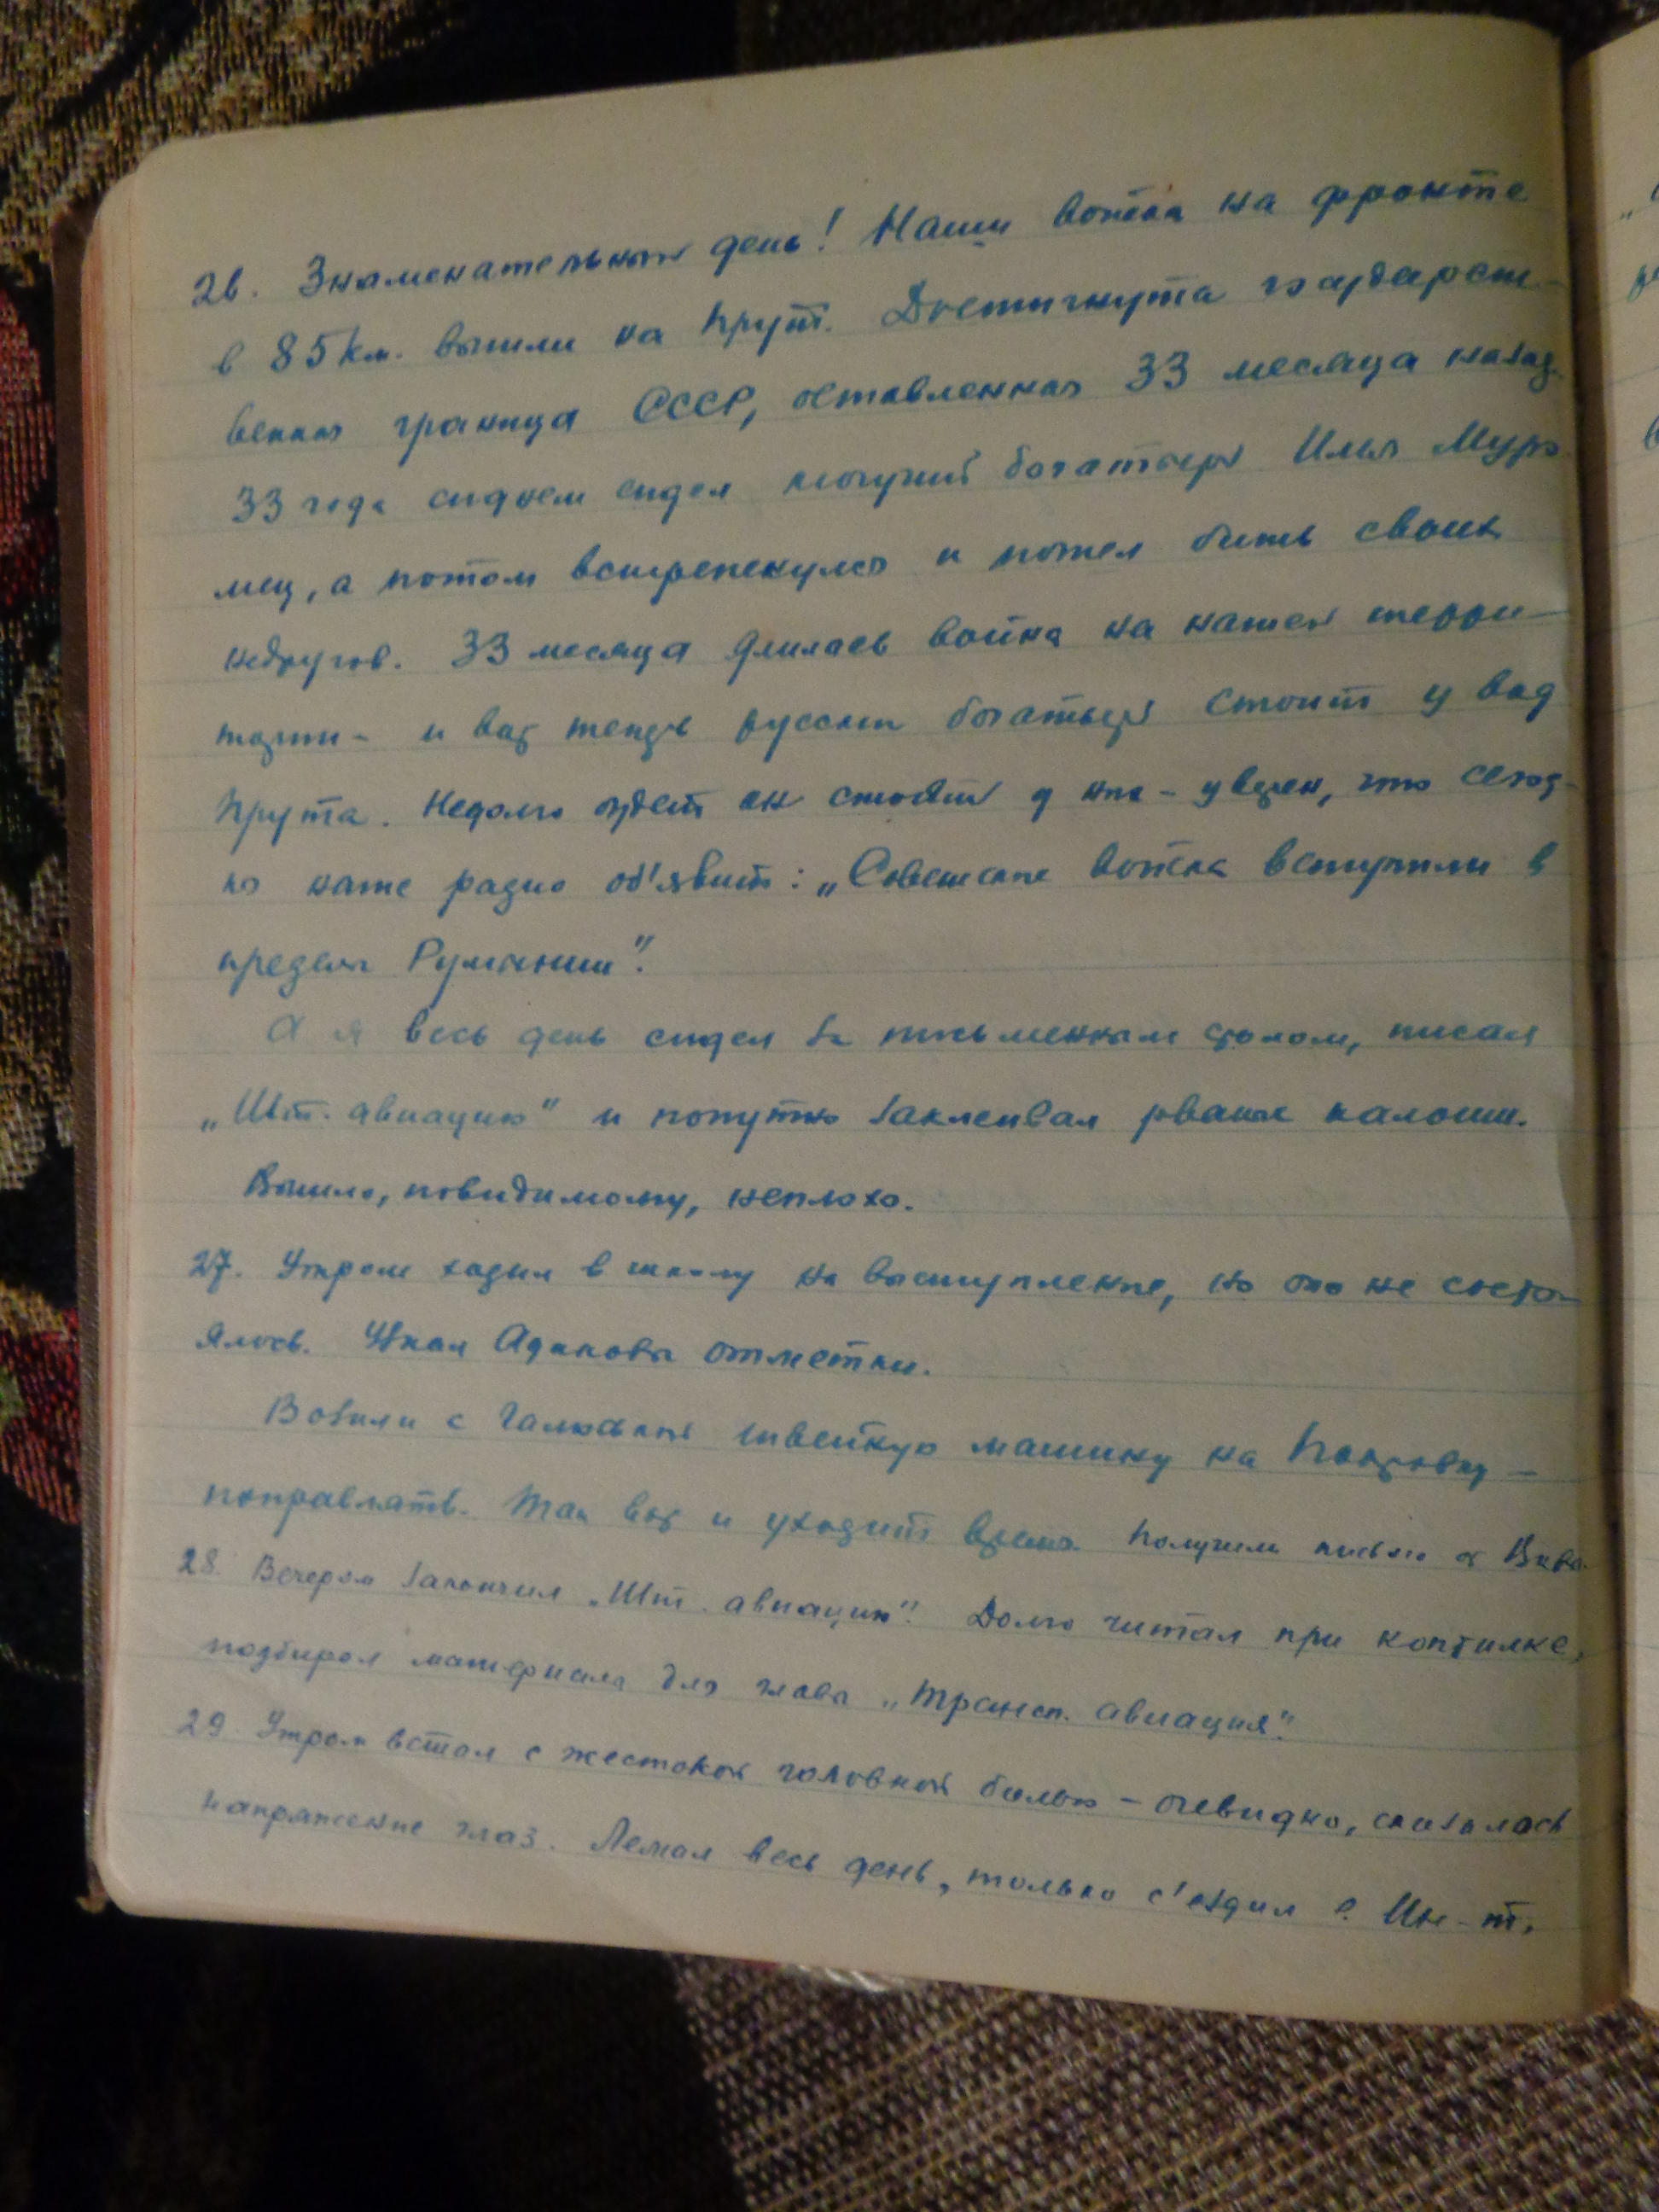 26. Знаменательный день! Наши войска на фронте
в 85 км. вышли на Прут. Достигнута государст-
венная граница СССР, оставленная 33 месяца назад.
33 года сиднем сидел могучий богатырь Илья Муро-
мец, а потом встрепенулся и пошел бить своих
недругов. 33 месяца длилась война на нашей терри-
тории - и вот теперь русский богатырь стоит у вод
Прута. Недолго будет он стоять у них - уверен, что сегод-
ня наше радио об'явит: „Советские войска вступили в
пределы Румынии".
А я весь день сидел за письменным столом, писал
„Шт. авиацию" и попутно заклеивал рваные калоши.
Вышло, повидимому, неплохо.
27. Утром ходил в школу на выступление, но оно не состо-
ялось. Узнал отметки.
Возили с Галюськой швейную машину на Покровку -
поправлять. Так вот и уходит время. Получили письмо от
28. Вечером закончил „Шт. авиацию". Долго читал при коптилке,
подбирал материалы для главы „Трансп. авиация".
29. Утром встал с жестокой головной болью - очевидно, сказалось
напряжение глаз. Лежал весь день, только с'ездил в Ин-т.